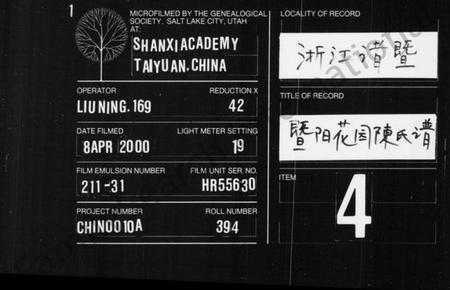 1
MICROFILMED BY THE GENEALOGICAL
SOCIETY, SALT LAKE CITY, UTAH
AT:
SHANXI ACADEMY
TAIYUAN, CHINA
OPERATOR
LIU NING. 169
REDUCTION X
42
DATE FILMED
8 APR 2000
LIGHT METER SETTING
19
FILM EMULSION NUMBER
211-31
FILM UNIT SER. NO.
HR55630
PROJECT NUMBER
CHN0010A
ROLL NUMBER
394
LOCALITY OF RECORD
浙江诸暨
TITLE OF RECORD
暨阳花园陳氏谱
ITEM
4